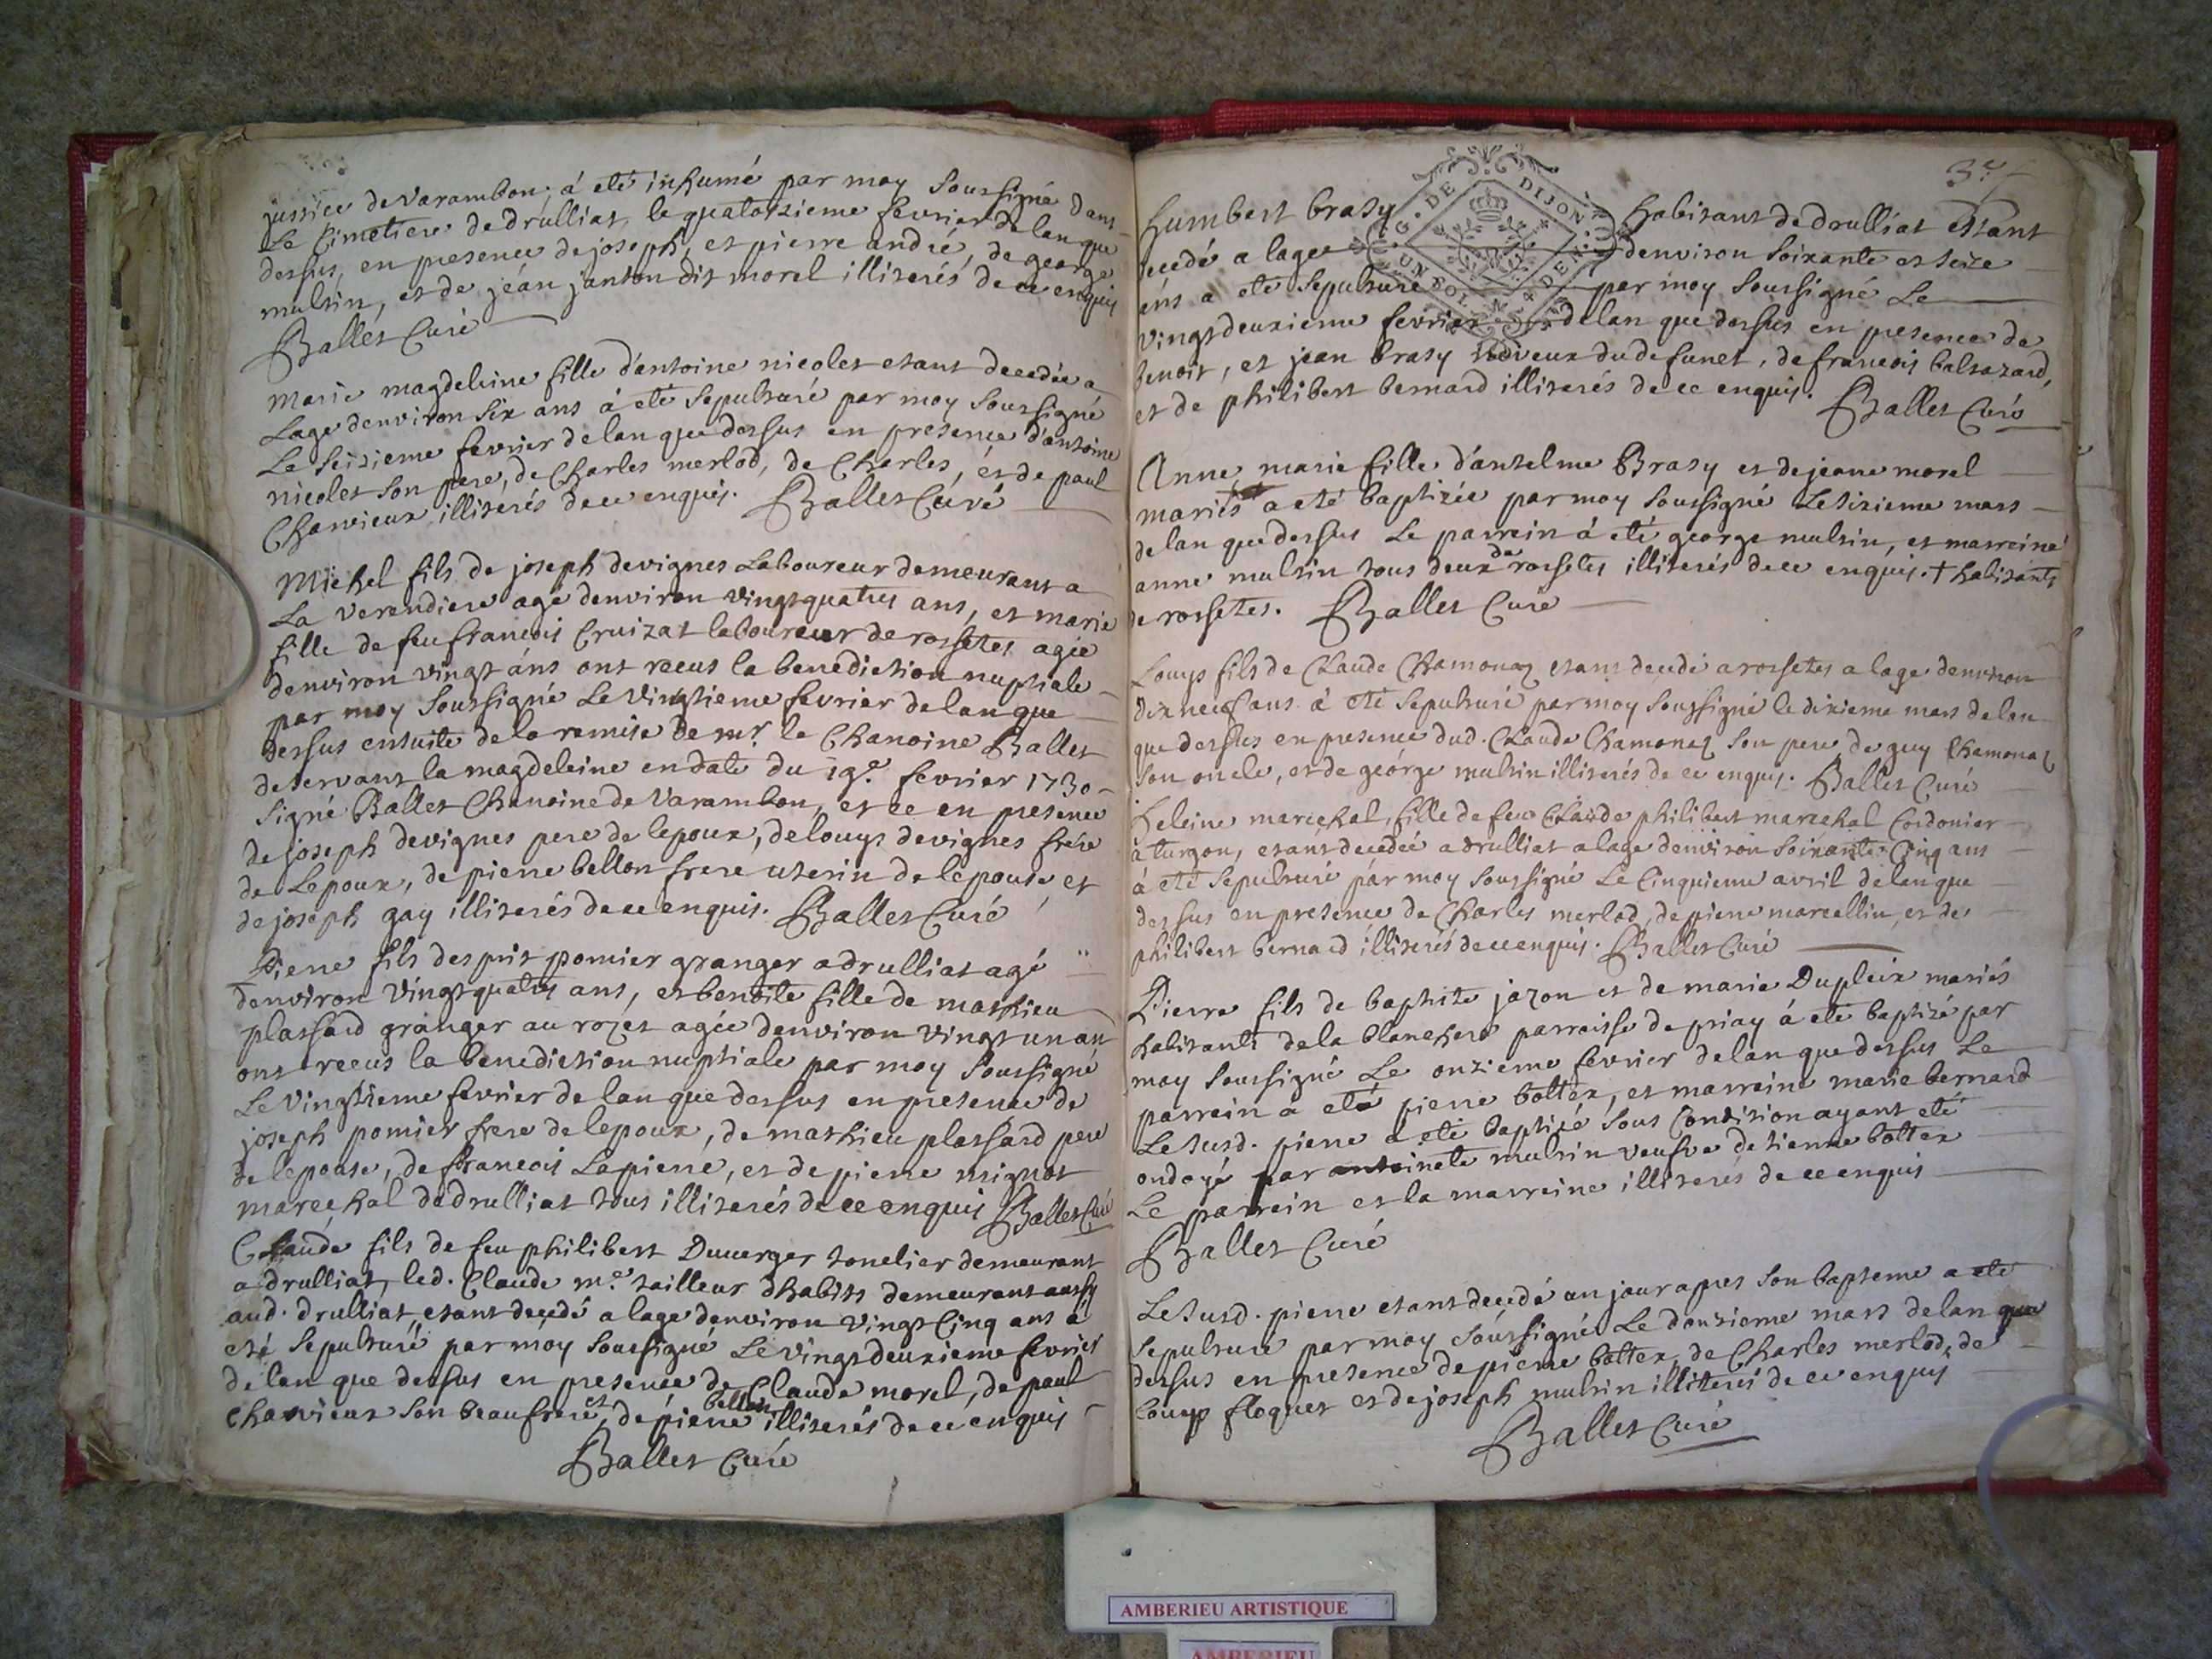 justice de Varambon, á eté inhumé par moy Soussigné dans
Le Cimetiere de drulliat, le quatorzieme fevrier de lan que
dessus, en presence de joseph, et pierre andré, de george
multin, et de jéan janton dit morel illiterés de ce enquis
Ballet Curé
Marie magdeleine fille d'antoine nicolet etant decedée a
Lage denviron Six ans á eté Sepulturé par moy Soussigné
Le Seizieme fevrier de lan que dessus en presence d'antoine
nicolet Son pere, de Charles merlod, de Charles, et de paul
Charvieux illiterés de ce enquis. Ballet Curé
Michel fils de joseph devignes Laboureur demeurant a
La Verendiere agé denviron vingt quatres ans, et marie
fille de feu francois Cruizat laboureur de rossetes agée
denviron vingt áns ont recus la benediction nuptiale
par moy Soussigné Le Vingtieme fevrier de lan que
dessus ensuite de la remise de mr. le Chanoine Ballet
deservant la magdeleine en date du 19e. fevrier 1730
Signé Ballet Chanoine de Varambon, et ce en presence
de joseph devignes pere de lepoux, de louys devignes frére
de Lepoux, de pierre bellon frere uterin de lépouse, et
de joseph gay illiterés de ce enquis. Ballet Curé
Piere fils despris pomier granger a drulliat agé
denviron Vingt quatres ans, et benoite fille de mathieu
plassard granger au rozet agée denviron vingt un an
ont recus la benediction nuptiale par moy Soussigné
Le Vingtieme fevrier de lan que dessus en presence de
joseph pomier frere de lepoux, de mathieu plassard pere
de lepouse, de francois Lapierre, et de pierre mignot
marechal de drulliat tous illiterés de ce enquis Ballet Curé
Claude fils de feu philibert Duverger tonelier demeurant
a drulliat, led. Claude me. tailleur d'habits demeurant aussy
aud. drulliat, etant decedé a lage denviron vingt Cinq ans a
eté Sepulturé par moy Soussigné Le vingt deuxieme fevrier
de lan que dessus en presence de Claude morel, de paul
Charvieux Son beaufrere, et de pierre bellon illiterés de ce enquis
Ballet Curé
3e
G. DE DIJON
UN SOL N. 4 DEN.
humbert brasy habitant de drulliat etant
decedé a lage denviron Soixante et seize
áns a eté Sepulturé par moy Soussigné Le
vingt deuxieme fevrier de lan que dessus en presence de
benoit, et jean brasy neveux du defunct, de francois baltazard,
et de philibert bernard illiterés de ce enquis. Ballet Curé
Anne marie fille d'antelme Brasy et de jeane morel
mariés a eté baptizée par moy Soussigné Le Sixieme mars
de lan que dessus Le parrein á eté george multin, et marreine
anne multin tous deux de rossetes illiterés de ce enquis. + habitants
de rossetes. Ballet Curé
Louys fils de Claude Chamonaz etant decedé a rossetes a lage denviron
dix neuf ans á eté Sepulturé par moy Soussigné le dixieme mars de lan
que dessus en presence dud. Claude Chamonaz Son pere de guy Chamonaz
Son oncle, et de george multin illiterés de ce enquis. Ballet Curé
heleine marechal, fille de feu Claude philibert marechal Cordonier
á turgon, etant decedée a drulliat a lage denviron Soixante Cinq ans
á eté Sepulturé pár moy Soussigné Le Cinquieme avril de lan que
dessus en presence de Charles merlod, de piere marcellin, et de
philibert bernard illiterés de ce enquis. Ballet Curé
Pierre fils de baptiste jazon et de marie Dupleix mariés
habitants de la blanchere parroisse de priay á eté baptizé par
moy Soussigné Le onzieme fevrier de lan que dessus Le
parrein a eté pierre bottex, et marreine marie bernard
Le Susd. pierre a eté baptizé Sous Condition ayant eté
ondoyé par antoinete multin veufve detienne bottex
Le parrein et la marreine illiterés de ce enquis
Ballet Curé
Le Susd. piere etant decedé un jour apres Son bapteme a eté
Sepulturé par moy Soussigné Le douzieme mars de lan que
dessus en presence de pierre bottex, de Charles merlod, de
Louys floquet et de joseph multin illiterés de ce enquis
Ballet Curé
AMBERIEU ARTISTIQUE
AMBERIEU